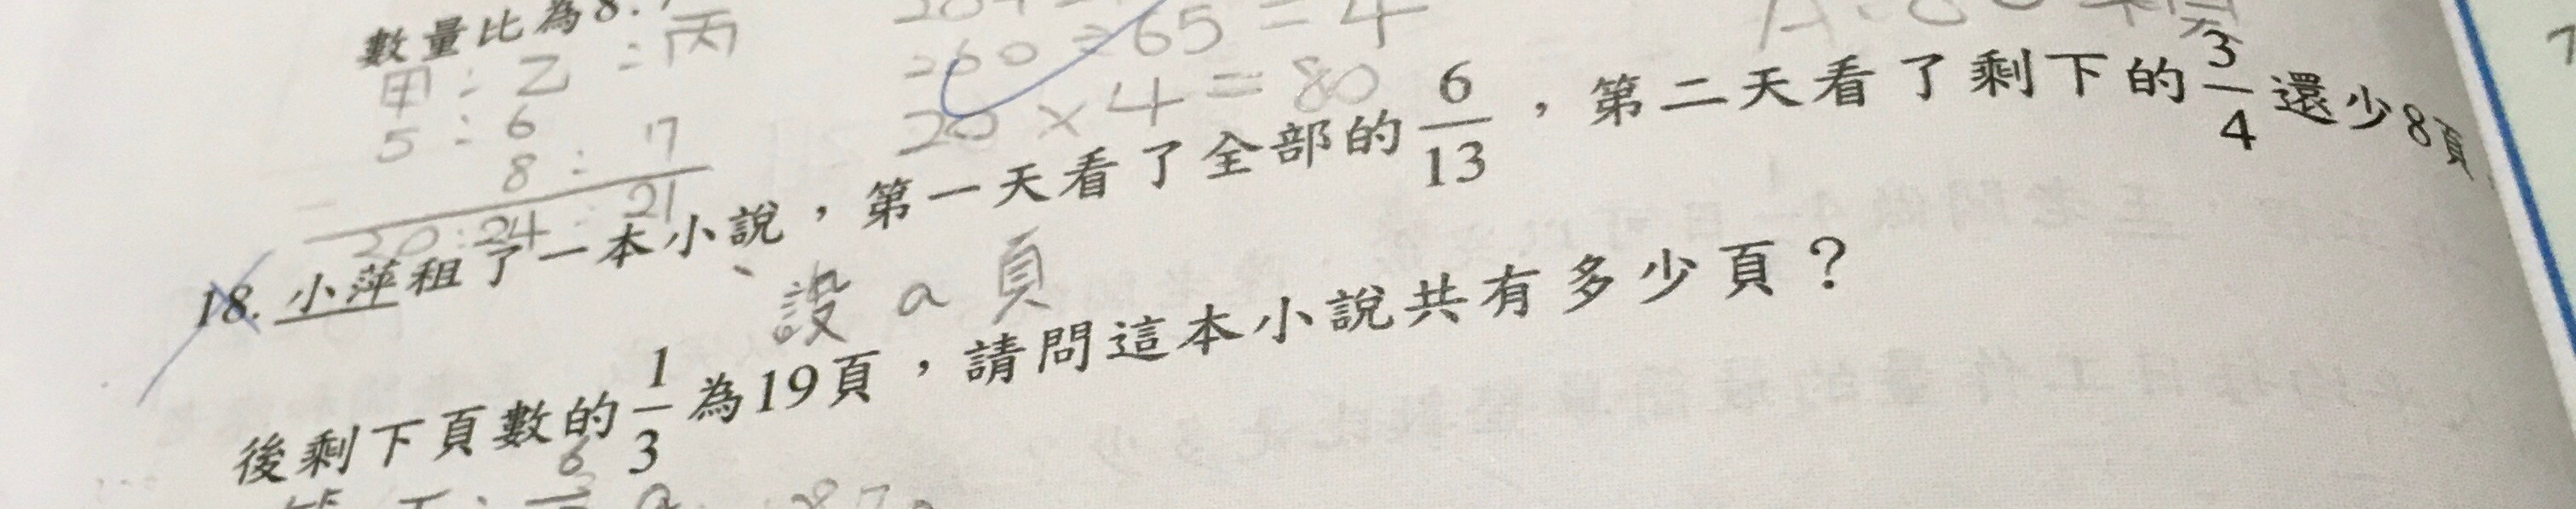 數量比為8:7
甲:乙:丙
5:6
8:7
20:24:21
260÷65=4
20×4=80
18. 小萍租了一本小說,第一天看了全部的6/13,第二天看了剩下的3/4還少8頁
設a頁
後剩下頁數的1/3為19頁,請問這本小說共有多少頁?